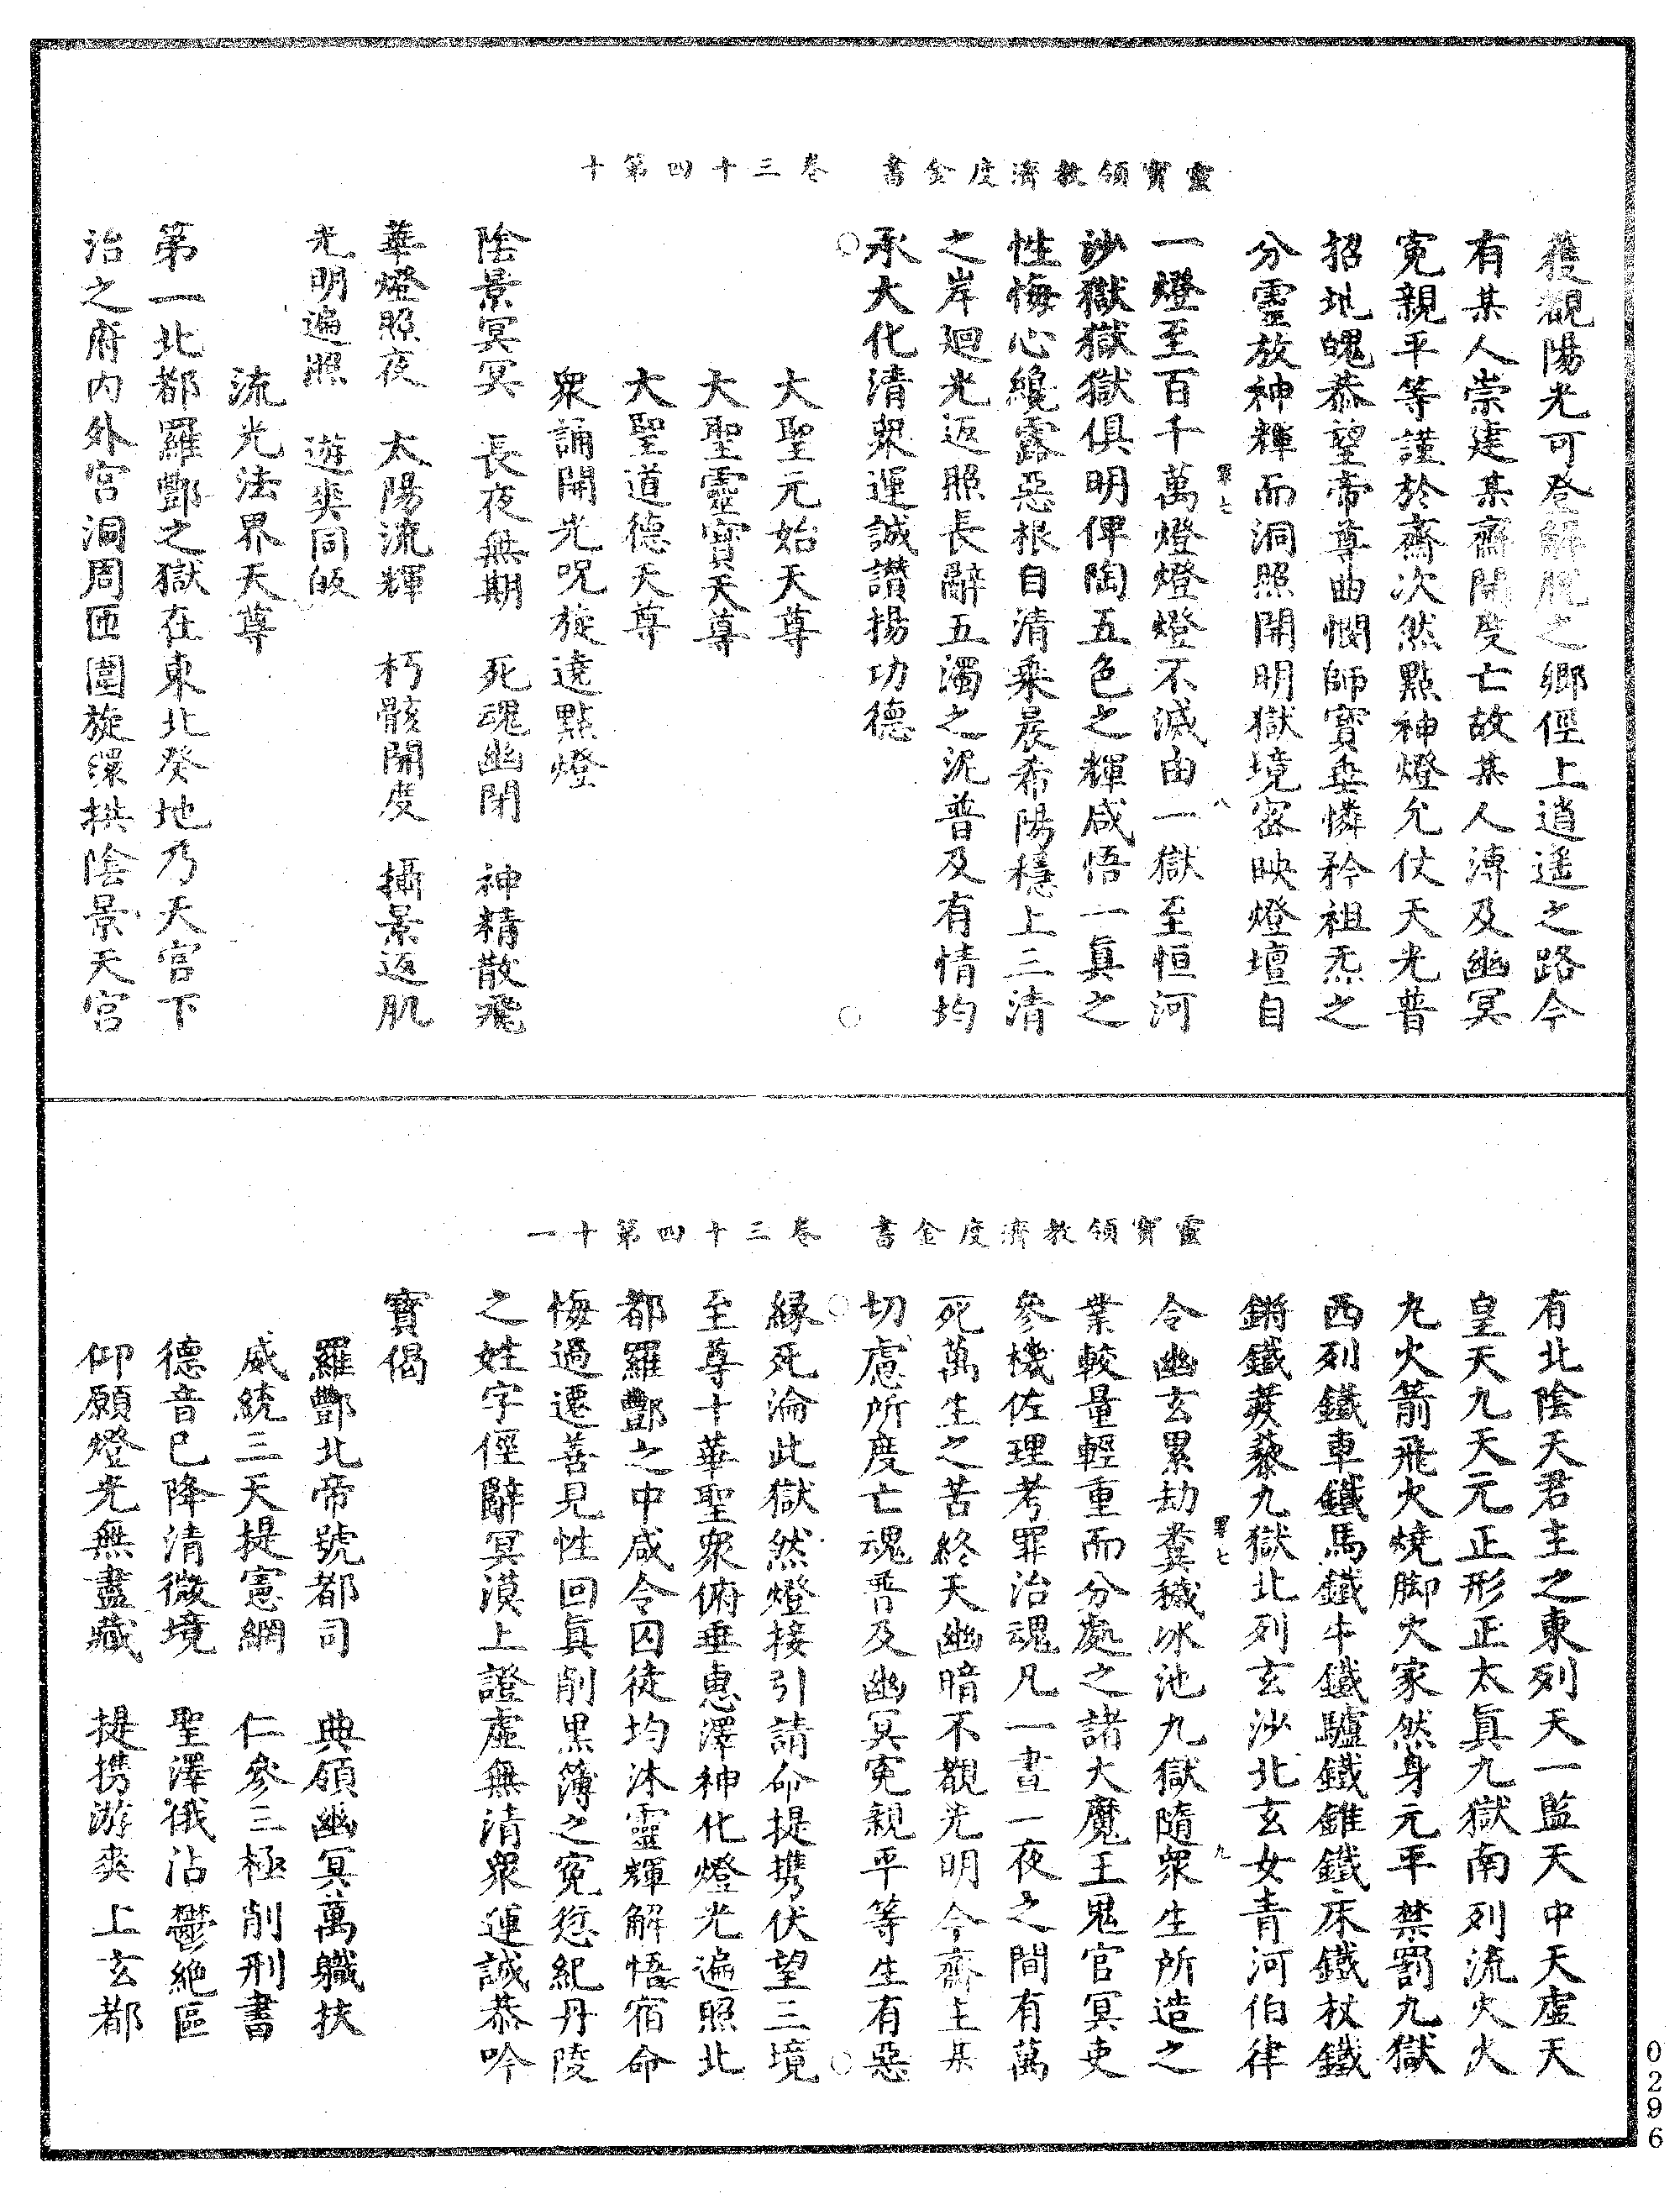 靈寶領教濟度金書　卷三十四第十
獲覩陽光可登解脫之鄉徑上逍遙之路今
有某人崇建某齋開度亡故某人溥及幽冥
冤親平等謹於齋次然點神燈允仗天光普
招地魄恭望帝尊曲憫師寶垂憐矜祖炁之
分靈放神輝而洞照開明獄境密映燈壇自
一燈至百千萬燈燈燈不滅由一獄至恒河
沙獄獄獄俱明俾陶五色之輝咸悟一眞之
性悔心纔露惡根自清乘晨希陽穩上三清
之岸迴光返照長辭五濁之泥普及有情均
承大化清衆運誠讚揚功德
大聖元始天尊
大聖靈寶天尊
大聖道德天尊
衆誦開光呪旋遶點燈
陰景冥冥　長夜無期　死魂幽閉　神精散飛
華燈照夜　太陽流輝　朽骸開度　攝景返肌
光明遍照　遊爽同皈
流光法界天尊
第一北都羅酆之獄在東北癸地乃天宮下
治之府內外宮洞周匝圍旋環拱陰景天宮
靈寶領教濟度金書　卷三十四第十一
有北陰天君主之東列天一監天中天虛天
皇天九天元正形正太眞九獄南列流火火
九火箭飛火燒脚火家然身元平禁罰九獄
西列鐵車鐵馬鐵牛鐵驢鐵錐鐵床鐵杖鐵
鏘鐵蒺藜九獄北列玄沙北玄女青河伯律
令幽玄累劫糞穢冰池九獄隨衆生所造之
業較量輕重而分處之諸大魔王鬼官冥吏
參機佐理考罪治魂凡一晝一夜之間有萬
死萬生之苦終天幽暗不覩光明今齋主某
切慮所度亡魂普及幽冥冤親平等生有惡
緣死淪此獄然燈接引請命提携伏望三境
至尊十華聖衆俯垂惠澤神化燈光遍照北
都羅酆之中咸令囚徒均沐靈輝解悟宿命
悔過遷善見性回眞削黑簿之冤愆紀丹陵
之姓字徑辭冥漠上證虛無清衆運誠恭吟
寶偈
羅酆北帝號都司　典領幽冥萬職扶
威統三天提憲綱　仁參三極削刑書
德音已降清微境　聖澤俄沾鬱絕區
仰願燈光無盡藏　提携游爽上玄都
0296